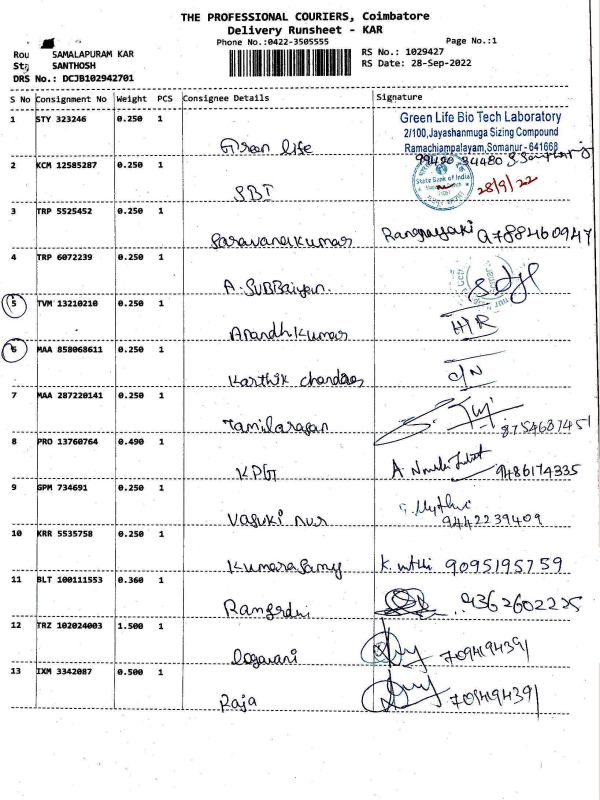 THE PROFESSIONAL COURIERS, Coimbatore
Delivery Runsheet - KAR
Phone No.:0422-3505555
Page No.:1
Rou SAMALAPURAM KAR
RS No.: 1029427
SANTHOSH
RS Date: 28-Sep-2022
DRS No.: DCJB102942701
S No Consignment No Weight PCS Consignee Details Signature
1 STY 323246 0.250 1
Green Life Bio Tech Laboratory
2/100,Jayashanmuga Sizing Compound
Ramachiampalayam,Somanur - 641668
Green life
2 KCM 12585287 0.250 1
99420 34480
State Bank of India
28/9/22
SBI
3 TRP 5525452 0.250 1
Saravanakumar
4 TRP 6072239 0.250 1
A. SUBBaiyan
5 TVM 13210210 0.250 1
Anandhkumar H/R
6 MAA 858068611 0.250 1
Karthik chandran
7 MAA 287220141 0.250 1
Tamilarasan
8 PRO 13760764 0.490 1
KPG 9486174335
9 GPM 734691 0.250 1
Vasuki nur 9442239409
10 KRR 5535758 0.250 1
Kumarasamy 9095195759
11 BLT 100111553 0.360 1
9362602225
12 TRZ 102024003 1.500 1
Logavani
13 IXM 3342087 0.500 1
Raja